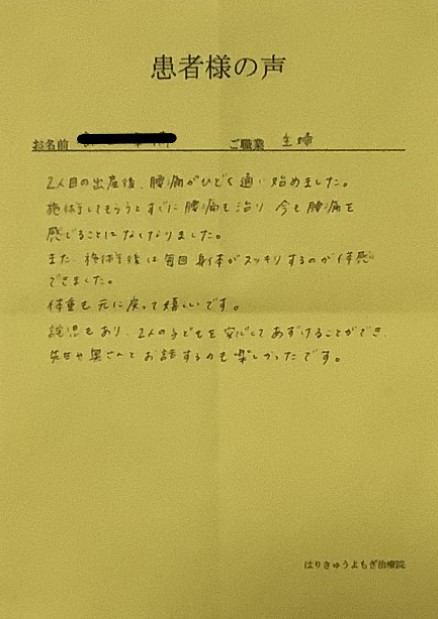 患者様の声
お名前 ご職業 主婦
2人目の出産後、腰痛がひどく通い始めました。
施術してもらうとすぐに腰痛も治り、今も腰痛を
感じることはなくなりました。
また、施術後は毎回身体がスッキリするのが体感
できました。
体重も元に戻って嬉しいです。
託児もあり、2人の子どもを安心してあずけることができ、
先生や奥さんとお話するのも楽しかったです。
はりきゅうよもぎ治療院